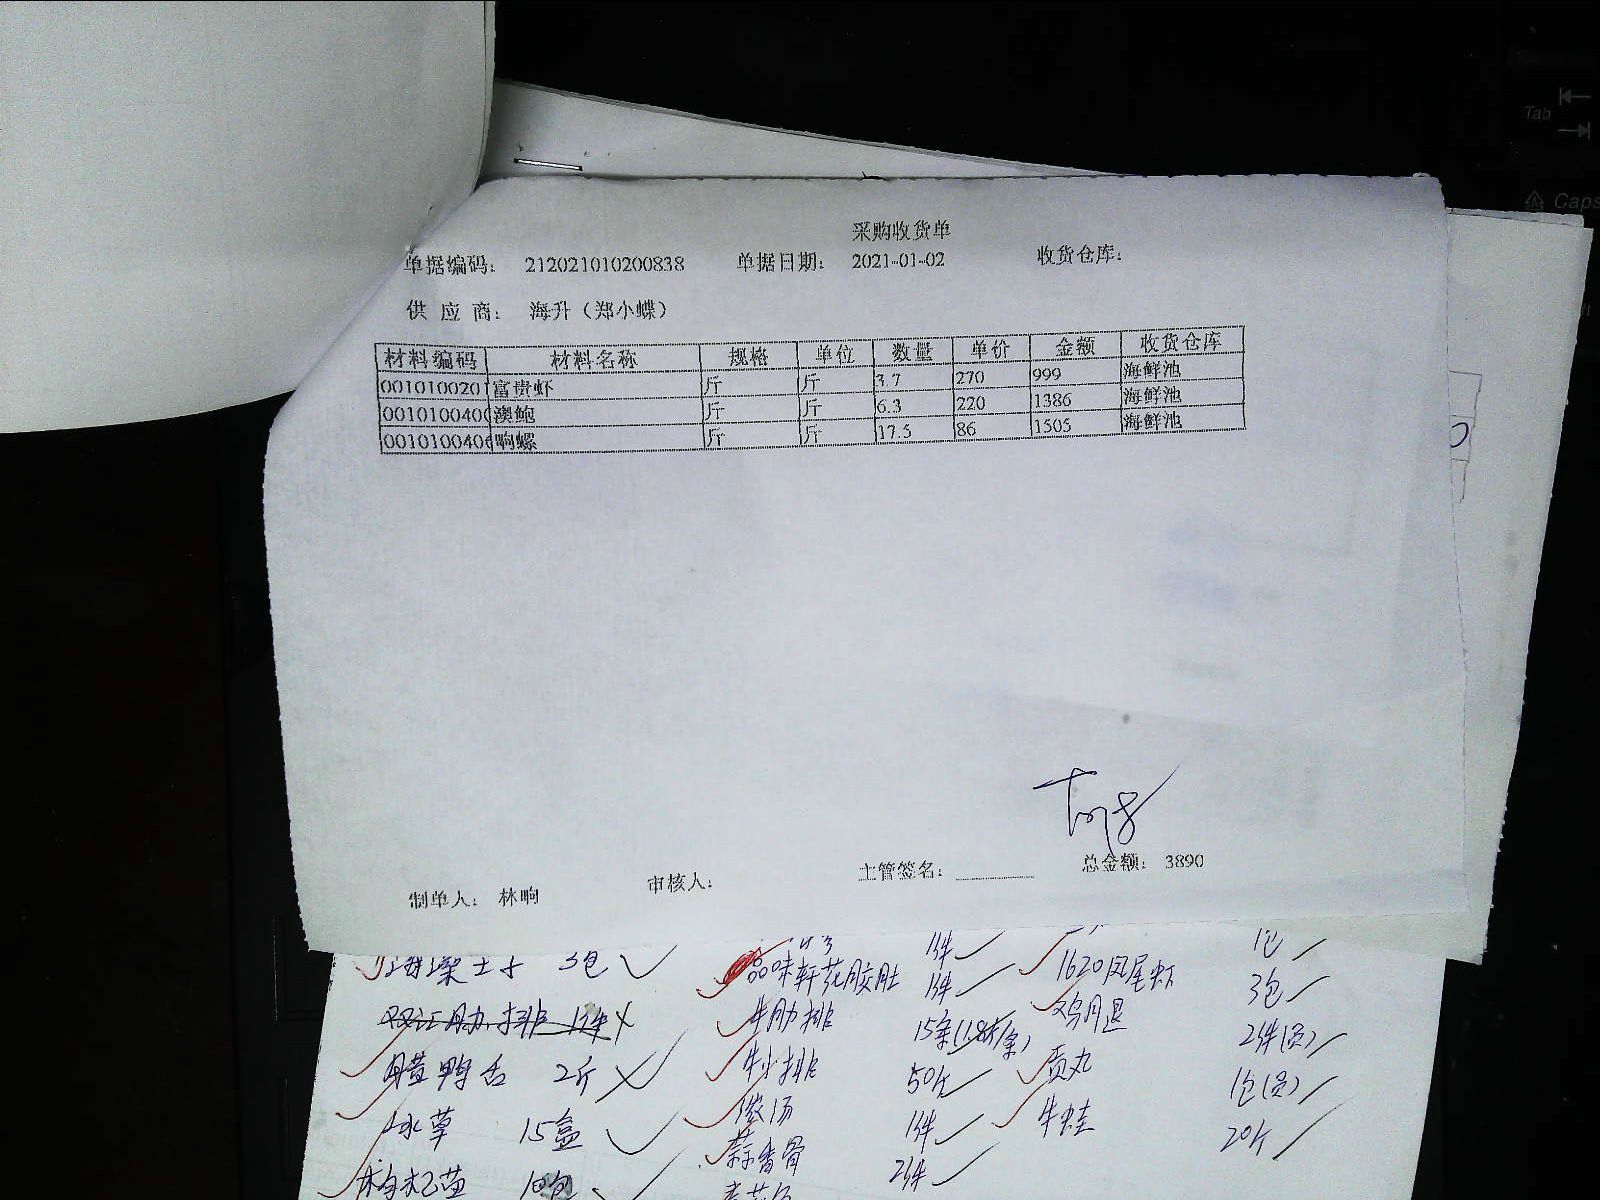 Tab
Caps
采购收货单
单据编码: 212021010200838 单据日期: 2021-01-02 收货仓库:
供 应 商: 海升（郑小蝶）
材料编码 材料名称 规格 单位 数量 单价 金额 收货仓库
0010100201 富贵虾 斤 斤 3.7 270 999 海鲜池
001010040 澳鲍 斤 斤 6.3 220 1386 海鲜池
001010040 响螺 斤 斤 17.5 86 1505 海鲜池
制单人: 林响 审核人: 主管签名: 总金额: 3890
3包 1件 1包
味轩花胶肚 1件 1620凤尾虾 3包
牛肋排 15条(1.8斤/条) 鸡腿 2件(员)
腊鸭舌 2斤 牛小排 50斤 贡丸 1包(员)
冰草 15盒 1件 牛蛙 20斤
枸杞苗 10包 蒜香骨 2件